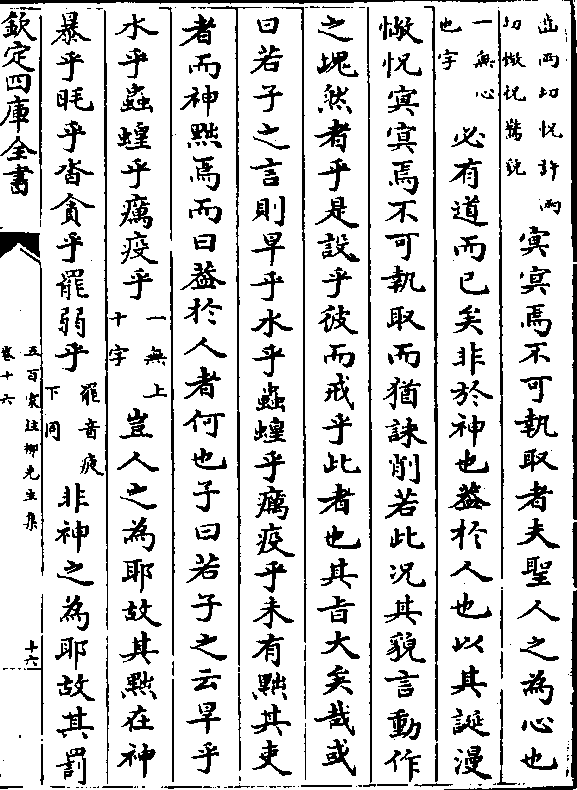 齒兩切怳許兩
切懒怳驚貌 冥冥焉不可執取者夫聖人之為心也
一無心
也字 必有道而已矣非於神也葢於人也以其誕漫
惝怳冥冥焉不可執取而猶誅削若此况其貌言動作
之塊然者乎是設乎彼而戒乎此者也其旨大矣哉或
曰若子之言則旱乎水乎蟲蝗乎癘疫乎未有黜其吏
者而神黜焉而曰葢於人者何也予曰若子之云旱乎
水乎蟲蝗乎癘疫乎 一無上
十字 豈人之為耶故其黜在神
暴乎眊乎沓貪乎罷弱乎 罷音疲
下同 非神之為耶故其罰
欽定四庫全書
五百家註柳先生集
卷十六
十六